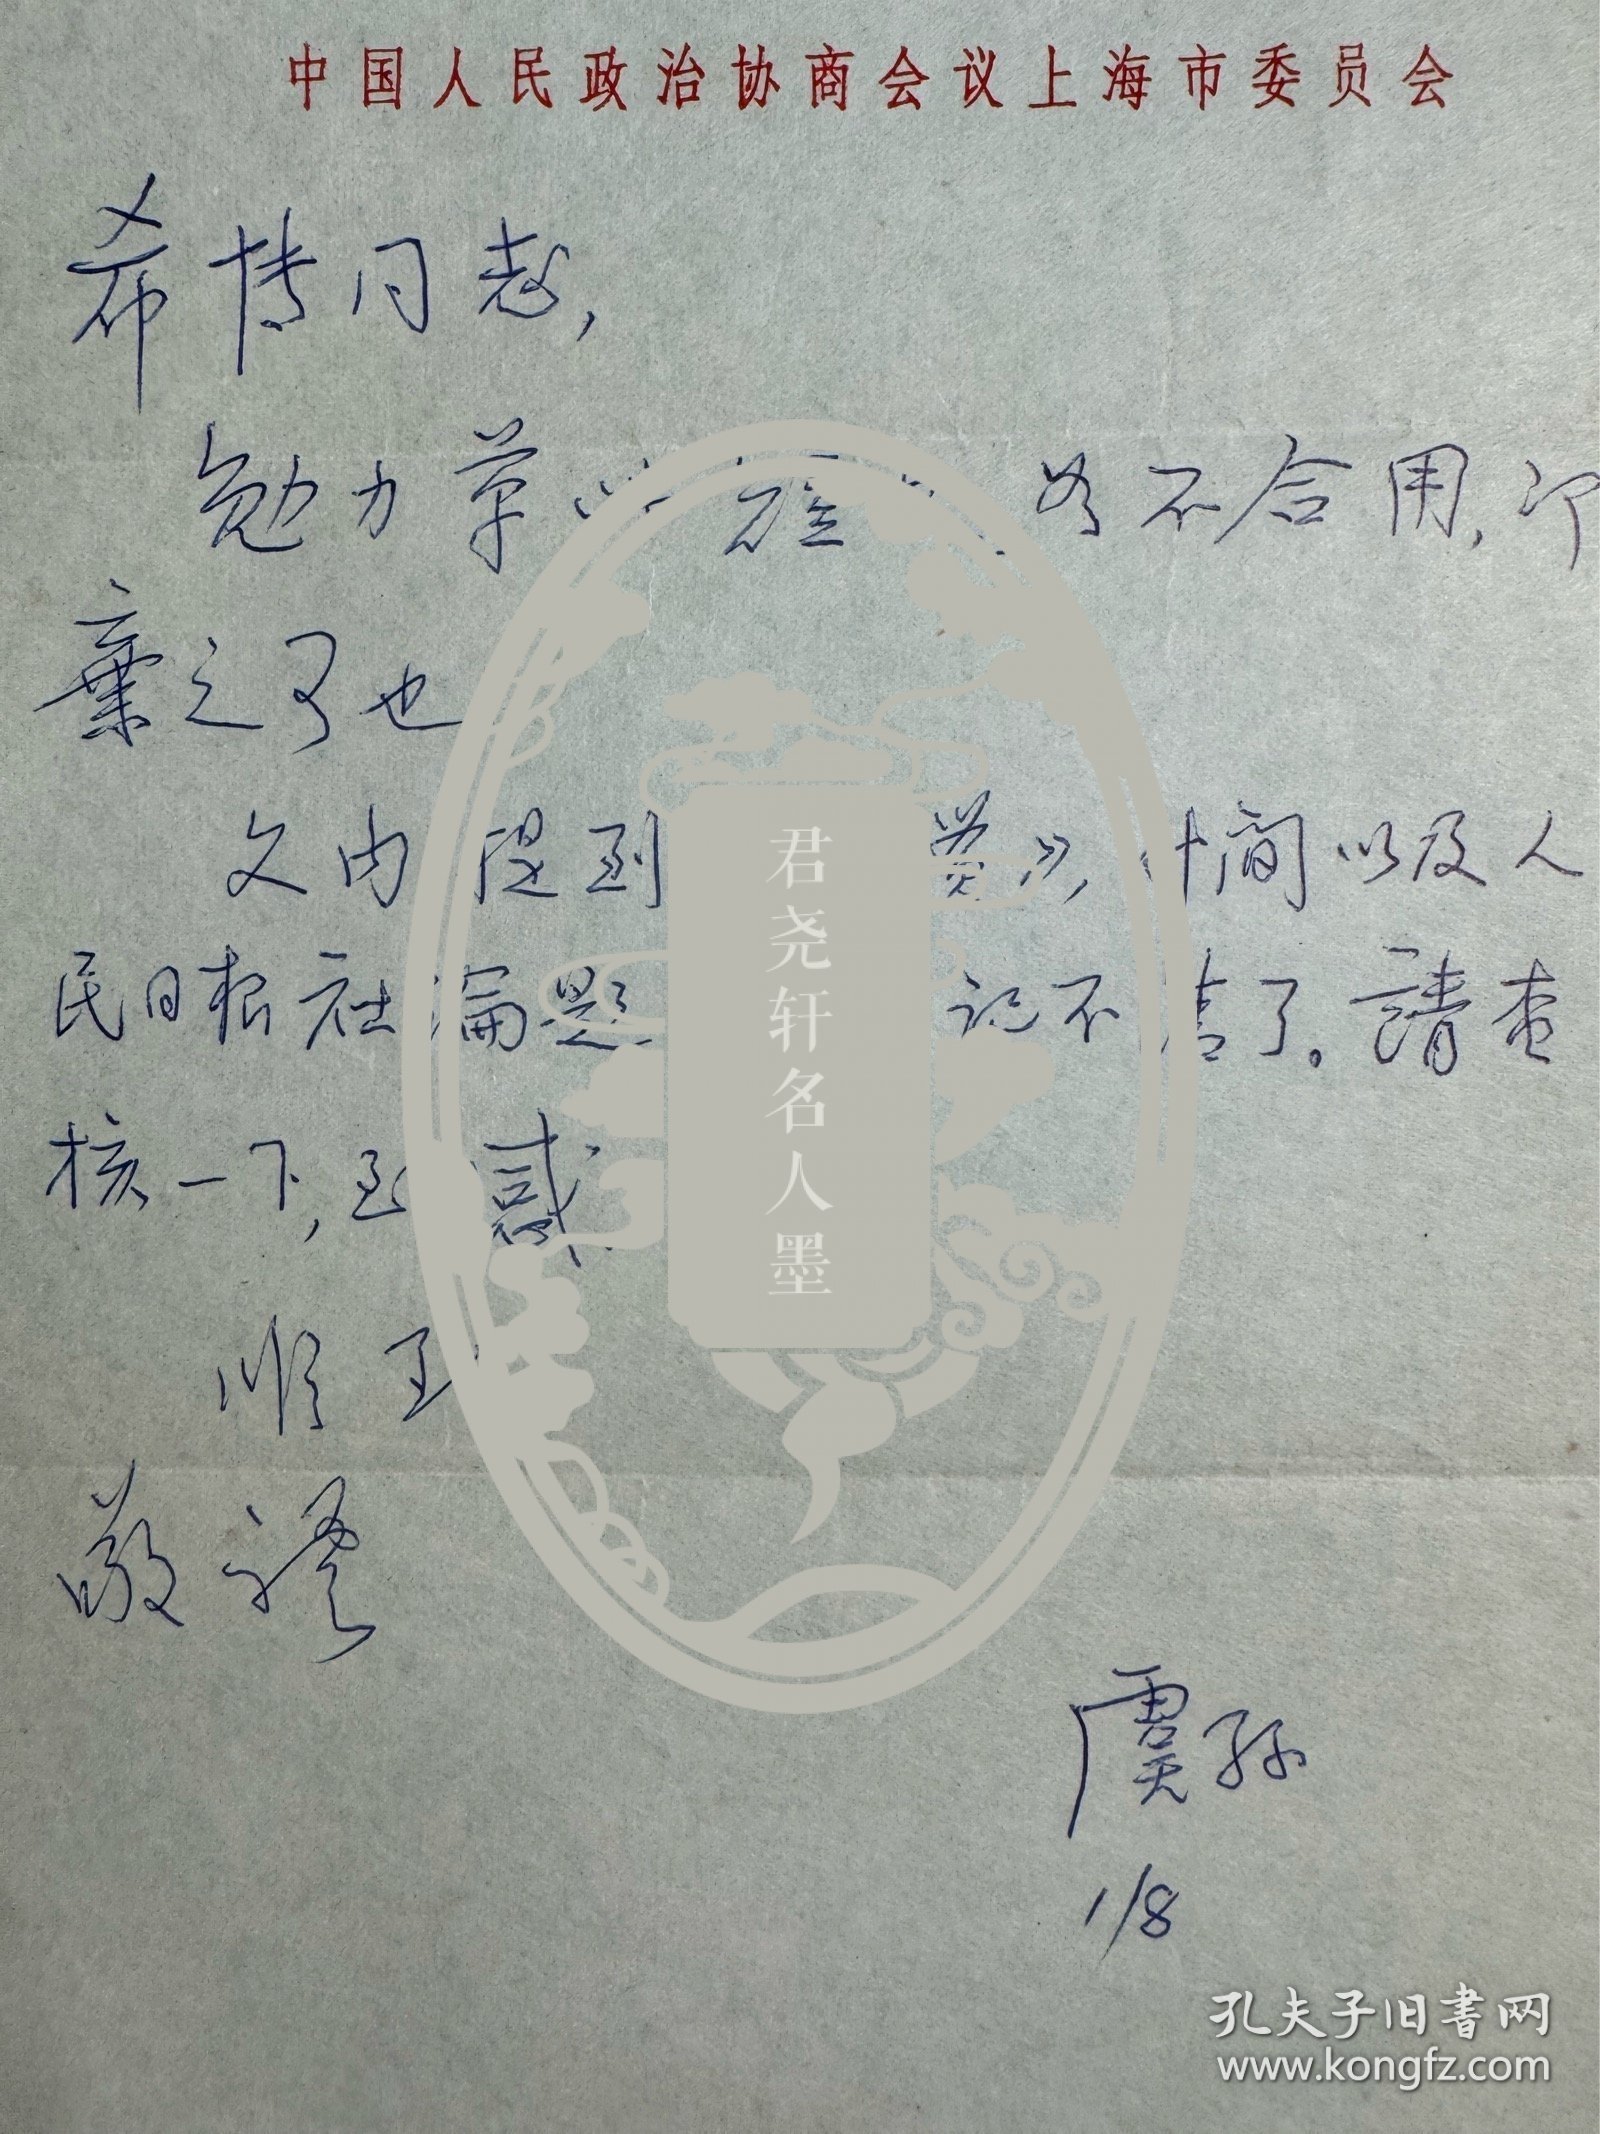 中国人民政治协商会议上海市委员会
希博同志,
勉力草 如不合用,即
棄之可也
文内提到 》,时间以及人
民日报社論題 记不清了。請查
核一下,至感
順至
敬禮
虞孙
1/8
君尧轩名人墨
孔夫子旧書网
www.kongfz.com